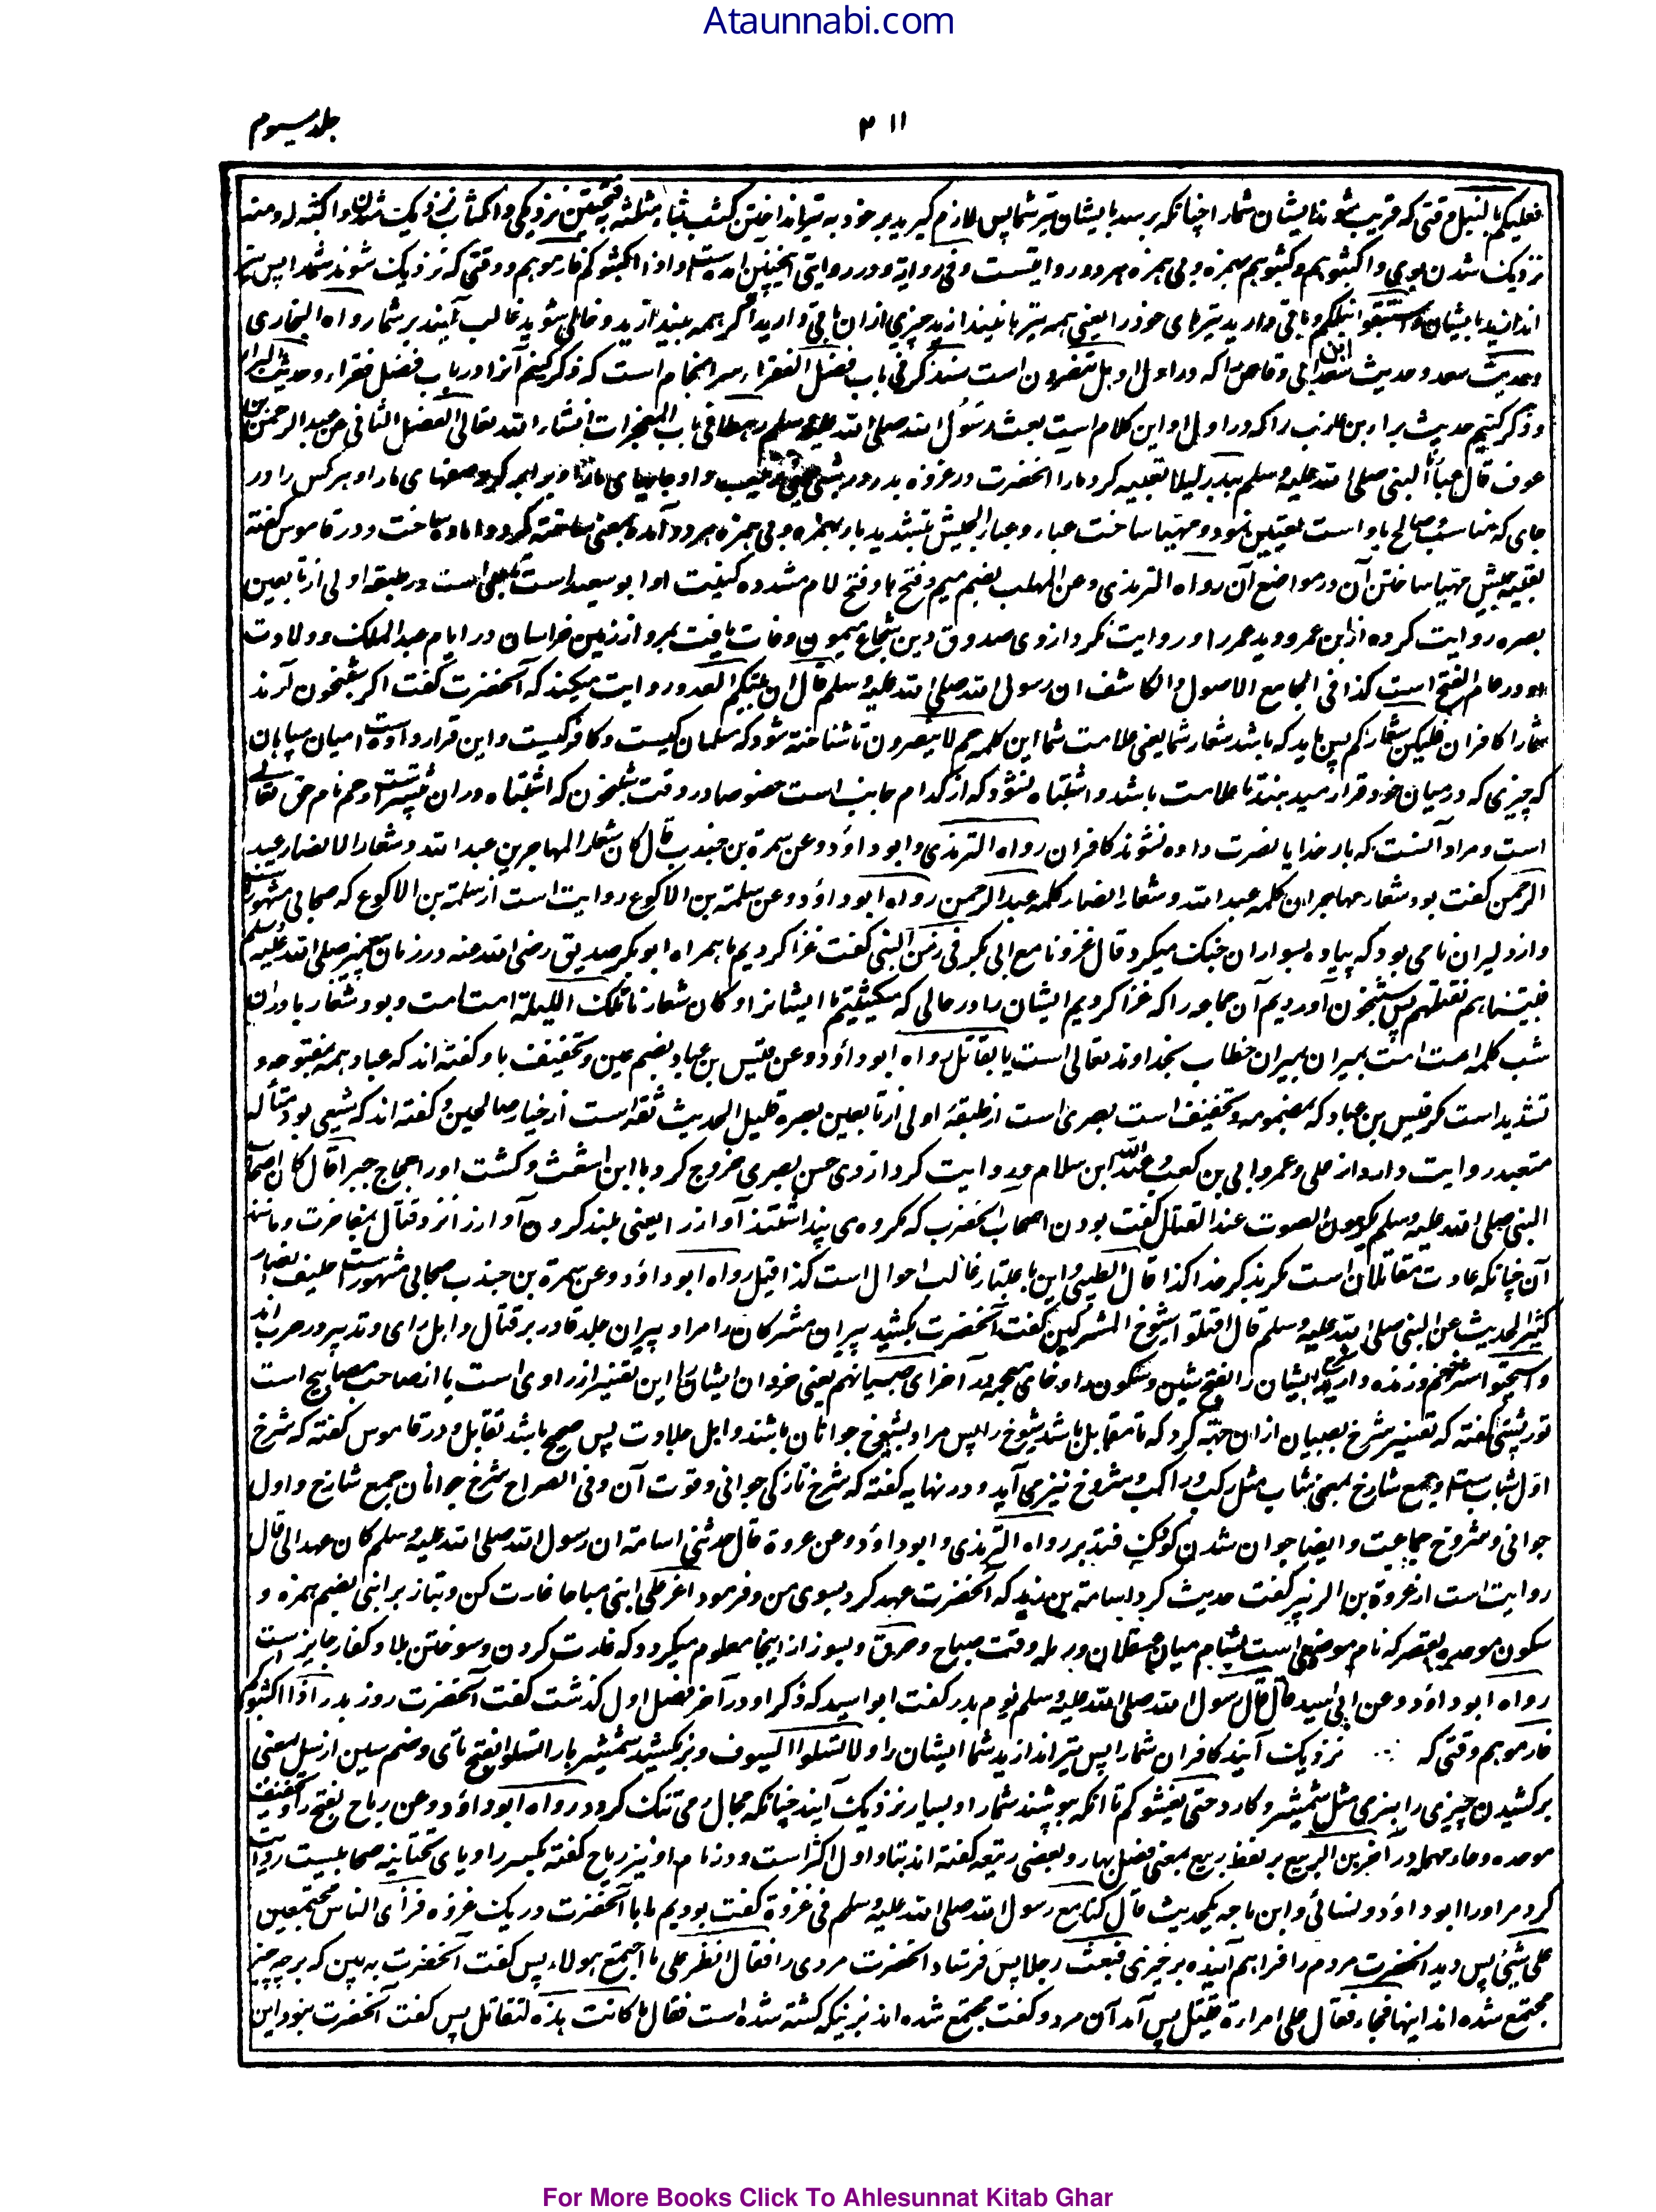 Ataunnabi.com
جلد سیوم
۳۱۱
فعلیکم بالنبل وقتی که قریب شوند ایشان شمارا چنانکه برسد بایشان تیر شما پس لازم گیرید بر خود به تیر انداختن کثب بثاء مثلثه بفتحتین نزدیکی و اکثاب نزدیک شدن و اکثبه له ومنه
نزدیک شدن بوی و اکثبوهم وکثبوهم بهمزه و بی همزه هر دو روایتست وفی روایة و در روایتی اینچنین آمده است و اذا اکثبوکم فارموهم و وقتی که نزدیک شوند شمارا پس تیر
اندازید بایشان واستبقوا نبلکم و باقی دارید تیرهای خود را یعنی همه تیرها نیندازید چیزی ازان باقی دارید اگر همه بیندازید و خالی شوید غالب آیند بر شما رواه البخاری
وحدیث سعد و حدیث سعد ابن ابی وقاص را که در اول او هل تنصرون است سنذکر فی باب فضل الفقراء سرانجام است که ذکر کنیم آنرا در باب فضل فقراء وحدیث البراء
وذکر کنیم حدیث براء بن عازب را که در اول او این کلام است بعث رسول الله صلی الله علیه وسلم رهطا فی باب المعجزات انشاء الله تعالی الفصل الثانی عن عبد الرحمن بن
عوف قال عبأنا النبی صلی الله علیه وسلم ببدر لیلا تعبیه کرد مارا آنحضرت در غزوه بدر در شب یعنی و او جاهای مارا و برابر کرد صفهای مارا و هر کس را در
جای که مناسب و صالح باو است تعیین نمود و مهیا ساخت عباء وعبا الجیش بتشدید باء بهمزه و بی همزه هر دو آمده بمعنی ساخته کرد و آماده ساخت و در قاموس گفته
تعبیه جیش مهیا ساختن آن در مواضع آن رواه الترمذی وعن المهلب بضم میم وفتح ها وفتح لام مشدده کنیت او ابو سعید است تابعی است در طبقه اولی از تابعین
بصره روایت کرده از ابن عمر و دید عمر را و روایت نکرد از وی صدوق دین شجاع میمون وفات یافت بمرو از زمین خراسان در ایام عبد الملک و ولادت
او در عام الفتح است کذا فی الجامع الاصول والکاشف ان رسول الله صلی الله علیه وسلم قال ان بیتکم العدو روایت میکند که آنحضرت گفت اگر شبخون آرند
شمارا کافران فلیکن شعارکم پس باید که باشد شعار شما یعنی علامت شما این کلمه حم لا ینصرون تا شناخته شود که مسلمان کیست و کافر کیست و این قرار داده است میان سپاهان
که چیزی که در میان خود قرار میدهند تا علامت باشد و اشتباه نشود که از کدام جانب است خصوصا در وقت شبخون که اشتباه در ان بیشتر است و حم نام حق تعالی
است و مراد آنست که بار خدایا نصرت داده نشوند کافران رواه الترمذی و ابو داؤد وعن سمرة بن جندب قال کان شعار المهاجرین عبد الله وشعار الانصار عبد
الرحمن گفت بود شعار مهاجران کلمه عبد الله و شعار انصار کلمه عبد الرحمن رواه ابو داؤد وعن سلمة بن الاکوع روایت است از سلمة بن الاکوع که صحابی مشهور است
و از دلیران نامی بود که پیاده بسواران جنگ میکرد قال غزونا مع ابی بکر فی زمن النبی گفت غزا کردیم ما همراه ابو بکر صدیق رضی الله عنه در زمان پیغمبر صلی الله علیه وسلم
فبیتناهم نقتلهم پس شبخون آوردیم آن جماعه را که غزا کردیم ایشان را در حالی که میکشتیم ما ایشانرا و کان شعارنا تلک اللیلة امت امت و بود شعار ما در ان
شب کلمه امت امت بمیران بمیران خطاب بخداوند تعالی است یا بقاتل رواه ابو داؤد وعن قیس بن عباد بضم عین و تخفیف با و گفته اند که عباد همه مفتوحه و
تشدید است مگر قیس بن عباد که مضمومه و تخفیف است بصری است از طبقه اولی از تابعین بصره قلیل الحدیث ثقه است از خیار صالحین و گفته اند که شیعی بود متأله
متعبد روایت دارد از علی و عمر و ابی بن کعب و عبد الله ابن سلام و روایت کرد از وی حسن بصری خروج کرد با ابن اشعث و کشت او را حجاج جبرا قال کان اصحاب
النبی صلی الله علیه وسلم یکرهون الصوت عند القتال گفت بودند اصحاب آنحضرت که مکروه می پنداشتند آواز را یعنی بلند کردن آواز را نزد قتال بمفاخرت و مانند
آن چنانکه عادت مقاتلان است مگر بذکر خدا کذا قال الطیبی و این باعتبار غالب احوال است کذا قیل رواه ابو داؤد وعن سمرة بن جندب صحابی مشهور است حلیف انصار
کثیر الحدیث عن النبی صلی الله علیه وسلم قال اقتلوا شیوخ المشرکین گفت آنحضرت بکشید پیران مشرکان را مراد پیران جلد قادر بر قتال و اهل رای و تدبیر در حرب اند
واستحیوا شرخهم و زنده دارید ایشان را بفتح شین و سکون را و خای معجمه در آخر ای صبیانهم یعنی خردان ایشان را این تفسیر از راوی است یا از صاحب مصابیح است
تورپشتی گفته که تفسیر شرخ بصبیان ازان جهة کرد که تا مقابل باشد شیوخ را پس مراد بشیوخ جوانان باشند و اهل جلادت پس صحیح باشد تقابل و در قاموس گفته که شرخ
اول شباب است و جمع شارخ بمعنی شاب مثل رکب و راکب و شروخ نیز می آید و در نهایه گفته که شرخ تازگی جوانی و قوت آن و فی الصراح شرخ جوانان جمع شارخ و اول
جوانی و شروخ جماعت و ایضا جوان شدن کودک فتدبر رواه الترمذی و ابو داؤد وعن عروة قال حدثنی اسامة ان رسول الله صلی الله علیه وسلم کان عهد الی قال
روایت است از عروة بن الزبیر گفت حدیث کرد اسامة بن زید که آنحضرت عهد کرد بسوی من و فرمود اغر علی ابنی صباحا غارت کن و بتاز بر ابنی بضم همزه و
سکون موحده بقصر که نام موضعی است بشام میان عسقلان و رمله وقت صباح وحرق و بسوز از اینجا معلوم میگردد که غارت کردن و سوختن بلاد کفار جایز است
رواه ابو داؤد وعن ابی اسید قال قال رسول الله صلی الله علیه وسلم یوم بدر گفت ابو اسید که ذکر او در آخر فصل اول گذشت گفت آنحضرت روز بدر اذا اکثبوکم
فارموهم وقتی که نزدیک آیند کافران شمارا پس تیر اندازید شما ایشان را ولا تسلوا السیوف و بر مکشید شمشیرها را تسلوا بفتح تای و ضم سین از سل بمعنی
برکشیدن چیزی را بنرمی مثل شمشیر و کارد حتی یغشوکم تا آنکه بپوشند شمارا و بسیار نزدیک آیند چنانکه مجال رمی تنگ گردد رواه ابو داؤد وعن رباح بفتح را و تخفیف
موحده و حاء مهمله در آخر بن الربیع بر لفظ ربیع بمعنی فصل بهار و بعضی ربیعه گفته اند بتا و اول اکثر است و در نام او نیز ریاح گفته بکسر را و یای تحتانیه صحابیست روایت
کرد مر او را ابو داؤد و نسائی و ابن ماجه یکحدیث قال کنا مع رسول الله صلی الله علیه وسلم فی غزوة گفت بودیم ما با آنحضرت در یک غزوه فرأی الناس مجتمعین
علی شیئ پس دید آنحضرت مردم را فراهم آینده بر چیزی فبعث رجلا پس فرستاد آنحضرت مردی را فقال انظر علی ما اجتمع هولاء پس گفت آنحضرت به بین که بر چه چیز
مجتمع شده اند اینها فجاء فقال علی امراءة قتیل پس آمد آن مرد و گفت مجتمع شده اند بر زنیکه کشته شده است فقال ما کانت هذه لتقاتل پس گفت آنحضرت نبود این
For More Books Click To Ahlesunnat Kitab Ghar